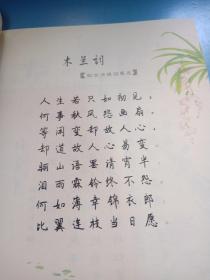 木兰词
人生若只如初见，
何事秋风悲画扇。
等闲变却故人心，
却道故人心易变。
骊山语罢清宵半，
泪雨霖铃终不怨。
何如薄幸锦衣郎，
比翼连枝当日愿。